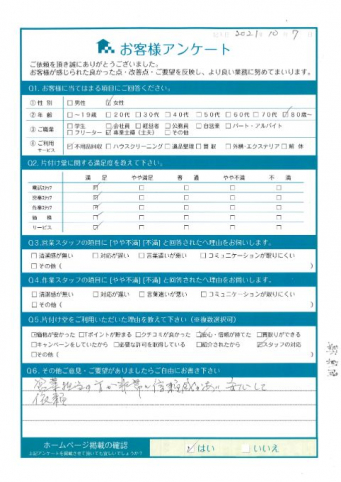 2021. 10. 7
お客様アンケート
ご依頼を頂き誠にありがとうございました。
お客様が感じられた良かった点・改善点・ご要望を反映し、より良い業務に努めてまいります。
Q1. お客様に当てはまる項目にご回答ください。
① 性 別 □ 男性 ☑ 女性
② 年 齢 □ ～19歳 □ 20代 □ 30代 □ 40代 □ 50代 □ 60代 □ 70代 ☑ 80歳～
③ ご職業 □ 学生 □ 会社員 □ 経営者 □ 公務員 □ 自営業 □ パート・アルバイト
□ フリーター ☑ 専業主婦（主夫） □ その他
④ ご利用サービス ☑ 不用品回収 □ ハウスクリーニング □ 遺品整理 □ 買取 □ 外構・エクステリア □ 解体
Q2. 片付け堂に関する満足度を教えて下さい。
満 足 やや満足 普 通 やや不満 不 満
電話スタッフ ☑ □ □ □ □
営業スタッフ ☑ □ □ □ □
作業スタッフ ☑ □ □ □ □
価 格 ☑ □ □ □ □
サービス ☑ □ □ □ □
Q3. 営業スタッフの項目に [やや不満] [不満] と回答された方へ理由をお伺いします。
□ 清潔感が無い □ 対応が遅い □ 言葉遣いが悪い □ コミュニケーションが取りにくい
□ その他 ( )
Q4. 作業スタッフの項目に [やや不満] [不満] と回答された方へ理由をお伺いします。
□ 清潔感が無い □ 対応が遅い □ 言葉遣いが悪い □ コミュニケーションが取りにくい
□ その他 ( )
Q5. 片付け堂をご利用いただいた理由を教えて下さい（※複数選択可）
☑価格が安かった □Tポイントが貯まる □クチコミが良かった □安心・信頼が持てた □買取りができる
□キャンペーンをしていたから □必要な許可を取得している □紹介されたから ☑スタッフの対応
□その他 ( )
Q6. その他ご意見・ご要望がありましたらご自由にお書き下さい
ホームページ掲載の確認
上記アンケートを掲載させて頂いても宜しいでしょうか？
☑ はい □ いいえ